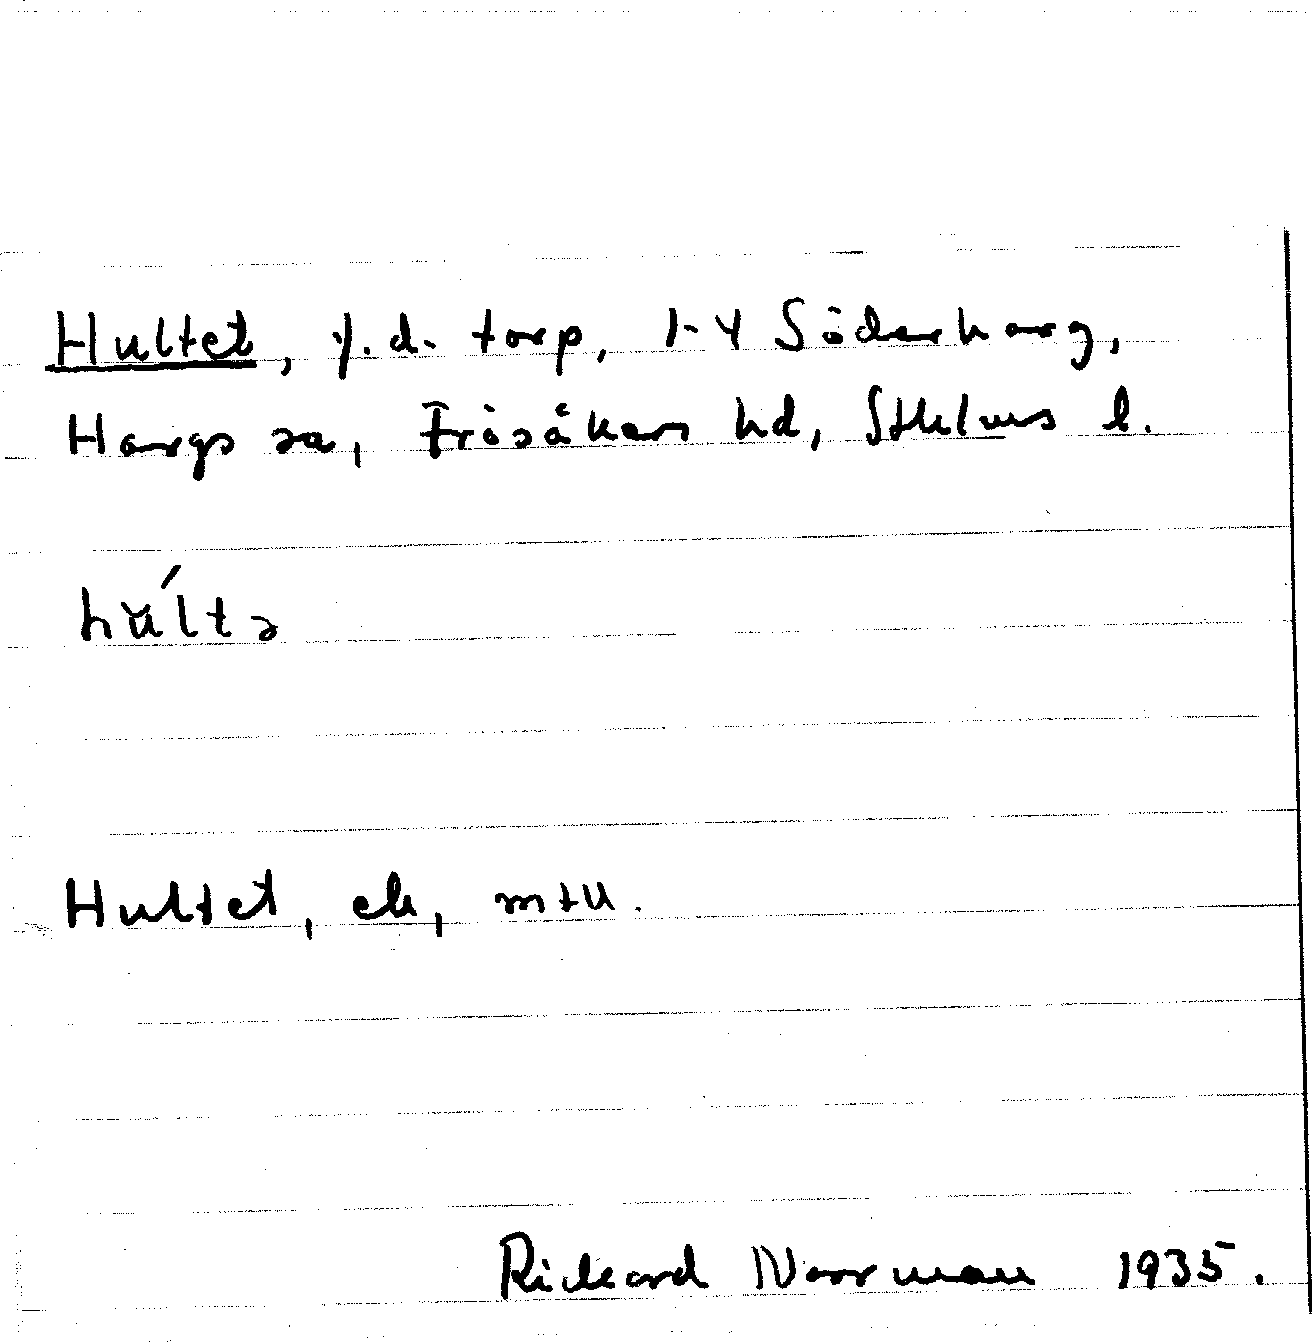 Hultet, f.d. torp, 1-4 Söderharg,
Hargs sn, Frösåkers hd, Sthlms l.
hu̇́ltə
Hultet, ek, mtu.
Rickard Norrman 1935.